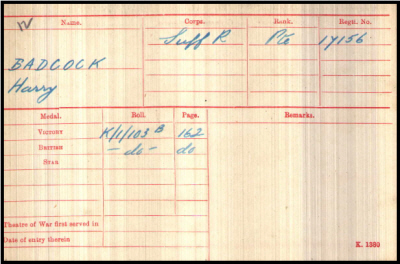 Name. Corps. Rank. Regtl. No.
BADCOCK Suff R Pte 17156
Harry
Medal. Roll. Page. Remarks.
VICTORY K/1/103 B 162
BRITISH - do - do
STAR
Theatre of War first served in
Date of entry therein K. 1380